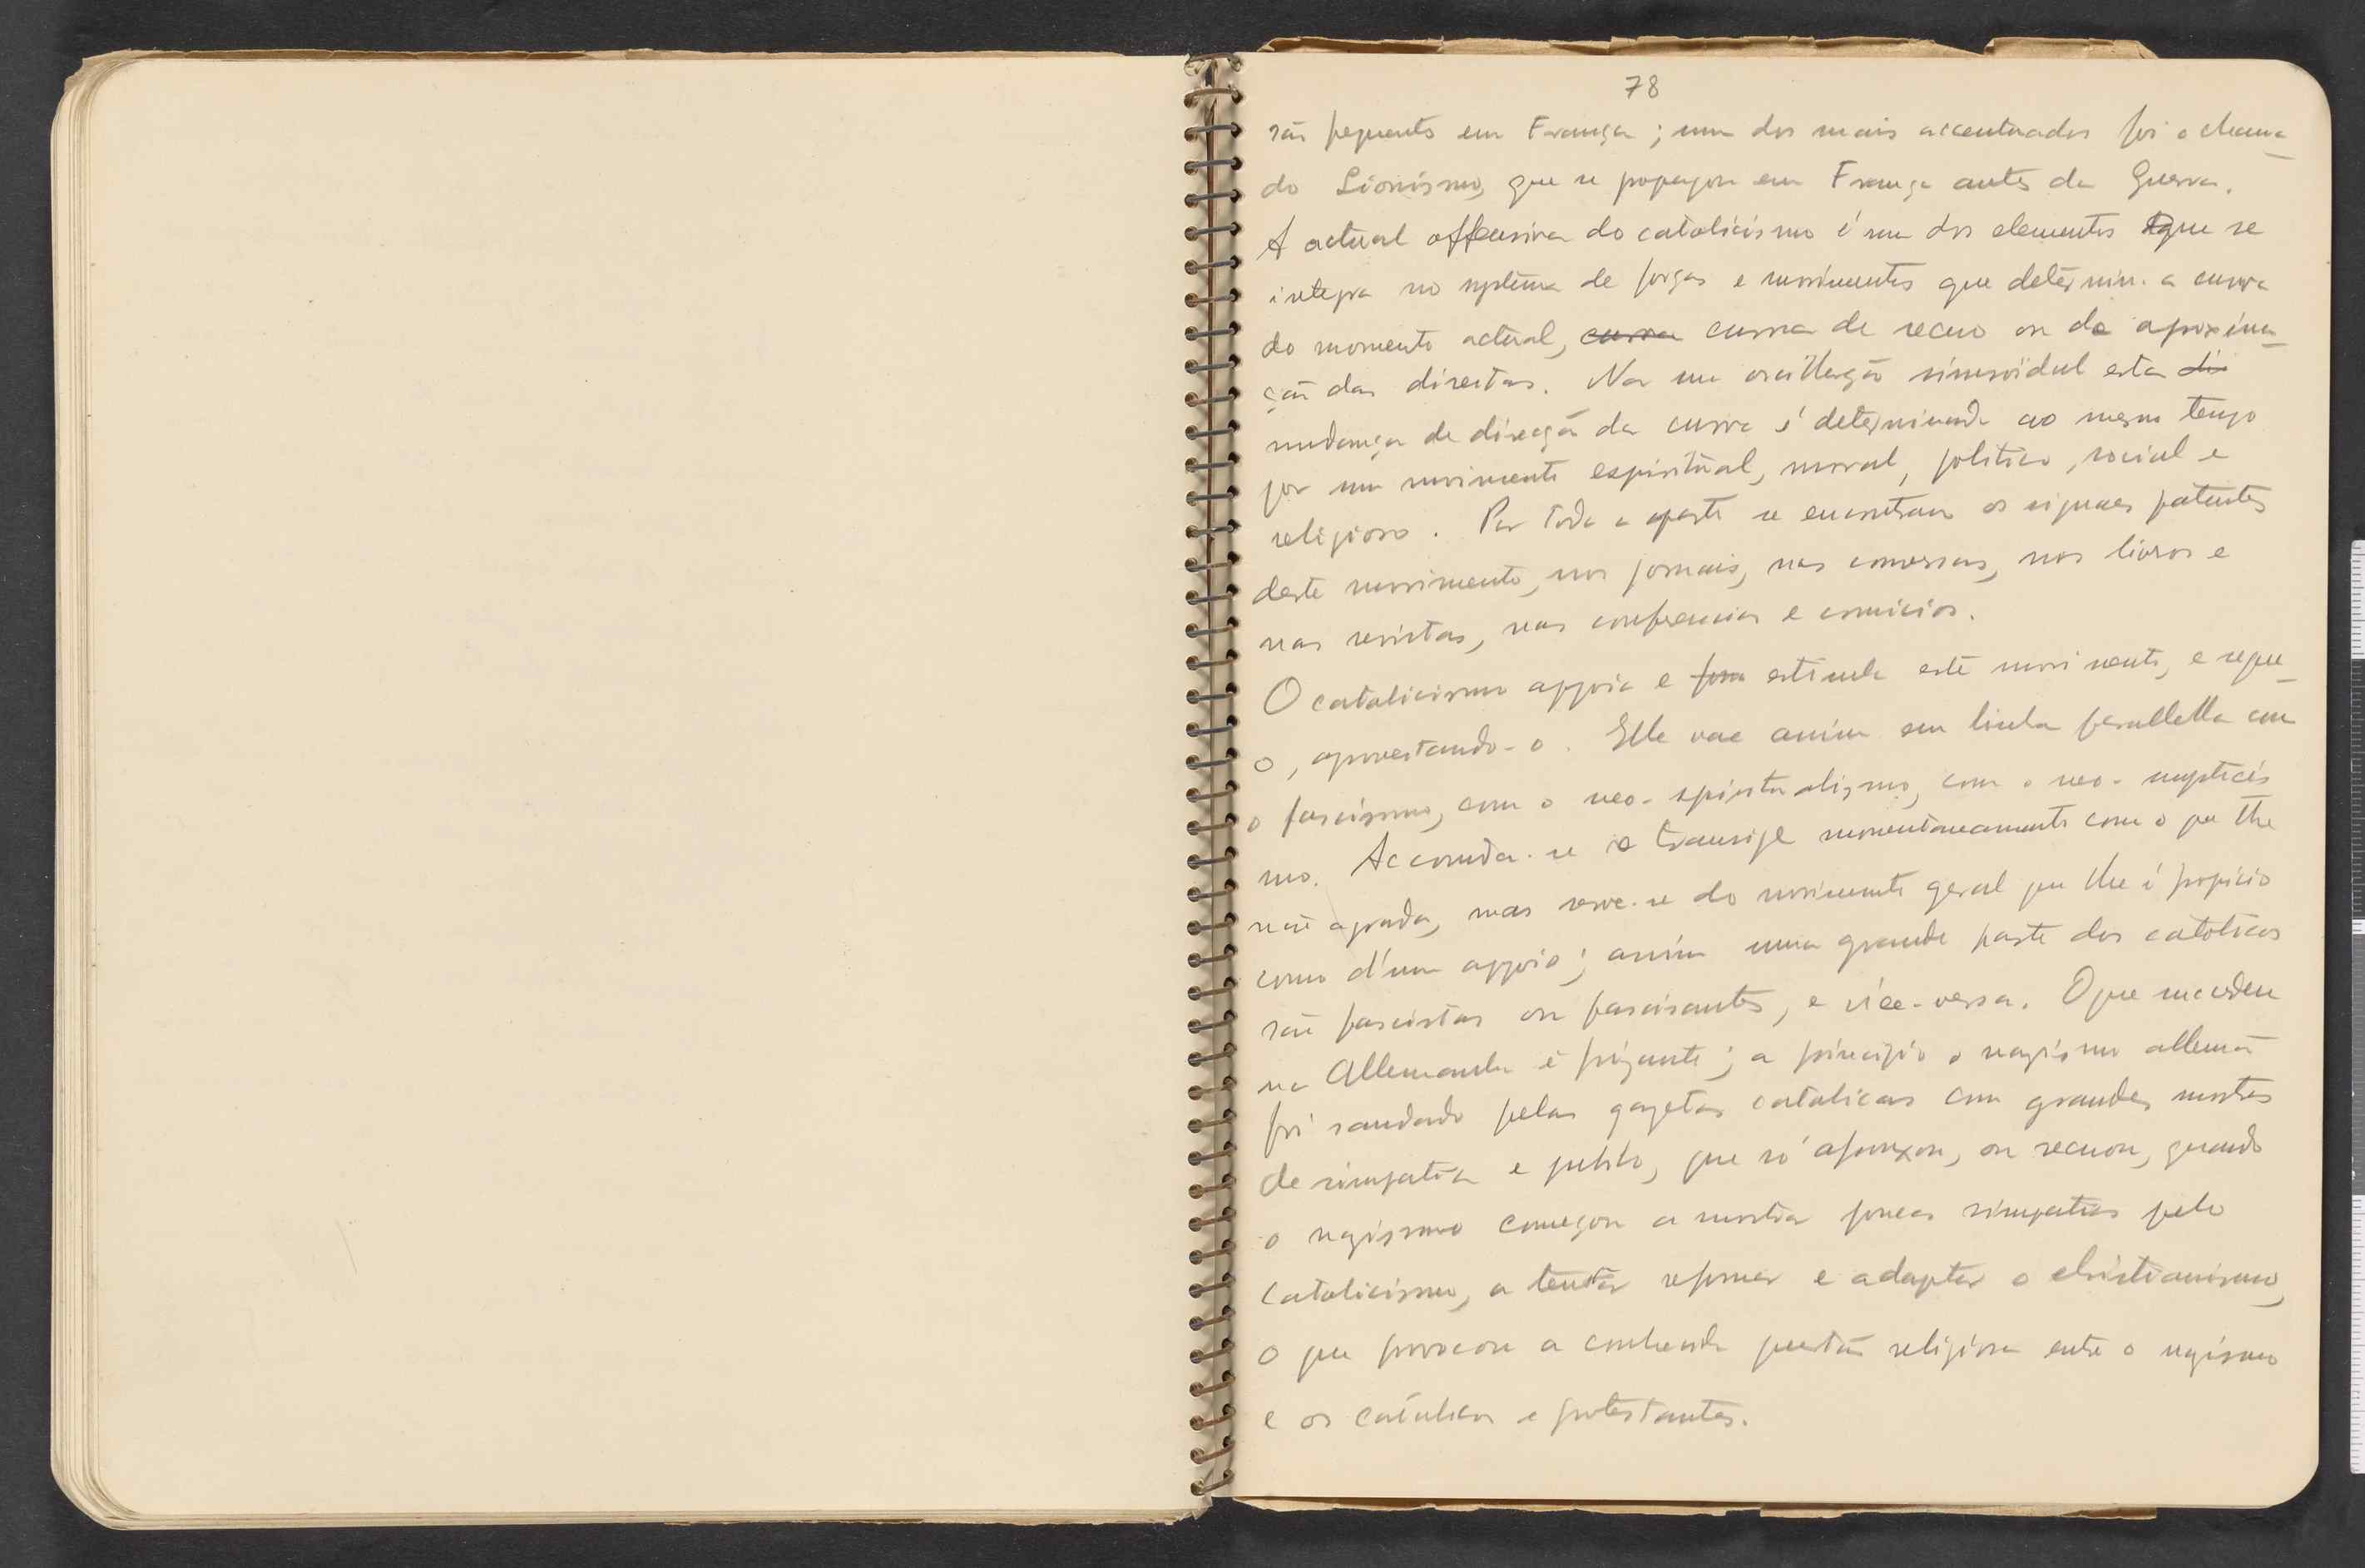 78
são frequentes em França; um dos mais accentuados foi o chama_
do Sionismo, que se propagou em França antes da Guerra.
A actual offensiva do catolicismo é um dos elementos que se
integra no systema de forças e movimentos que determin. a curva
do momento actual, curva curva de recuo ou de aproxima_
ção das direitas. Na sua oscillação sinusoidal esta di
mudança de direcção da curva é determinada ao mesmo tempo
por um movimento espiritual, moral, politico, social e
religioso. Por toda a parte se encontram os signaes patentes
deste movimento, nos jornais, nas conversas, nos livros e
nas revistas, nas conferencias e comicios.
O catolicismo appoia e estimula este movimento, e segue_
o, aproveitando-o. Elle vae assim em linha parallella com
o fascismo, com o neo-spiritualismo, com o neo-mysticis
mo. Accomoda-se e transige momentaneamente com o que lhe
não agrada, mas serve-se do movimento geral que lhe é propicio
como d'um appoio; assim uma grande parte dos catolicos
são fascistas ou fascisantes, e vice-versa. O que succedeu
na Allemanha é frizante; a principio o nazismo allemão
foi saudado pelas gazetas catolicas com grandes mostras
de simpatia e jubilo, que só afrouxou, ou recuou, quando
o nazismo começou a mostrar poucas simpatias pelo
catolicismo, a tentar reformar e adaptar o christianismo,
o que provocou a conhecida questão religiosa entre o nazismo
e os catolicos e protestantes.